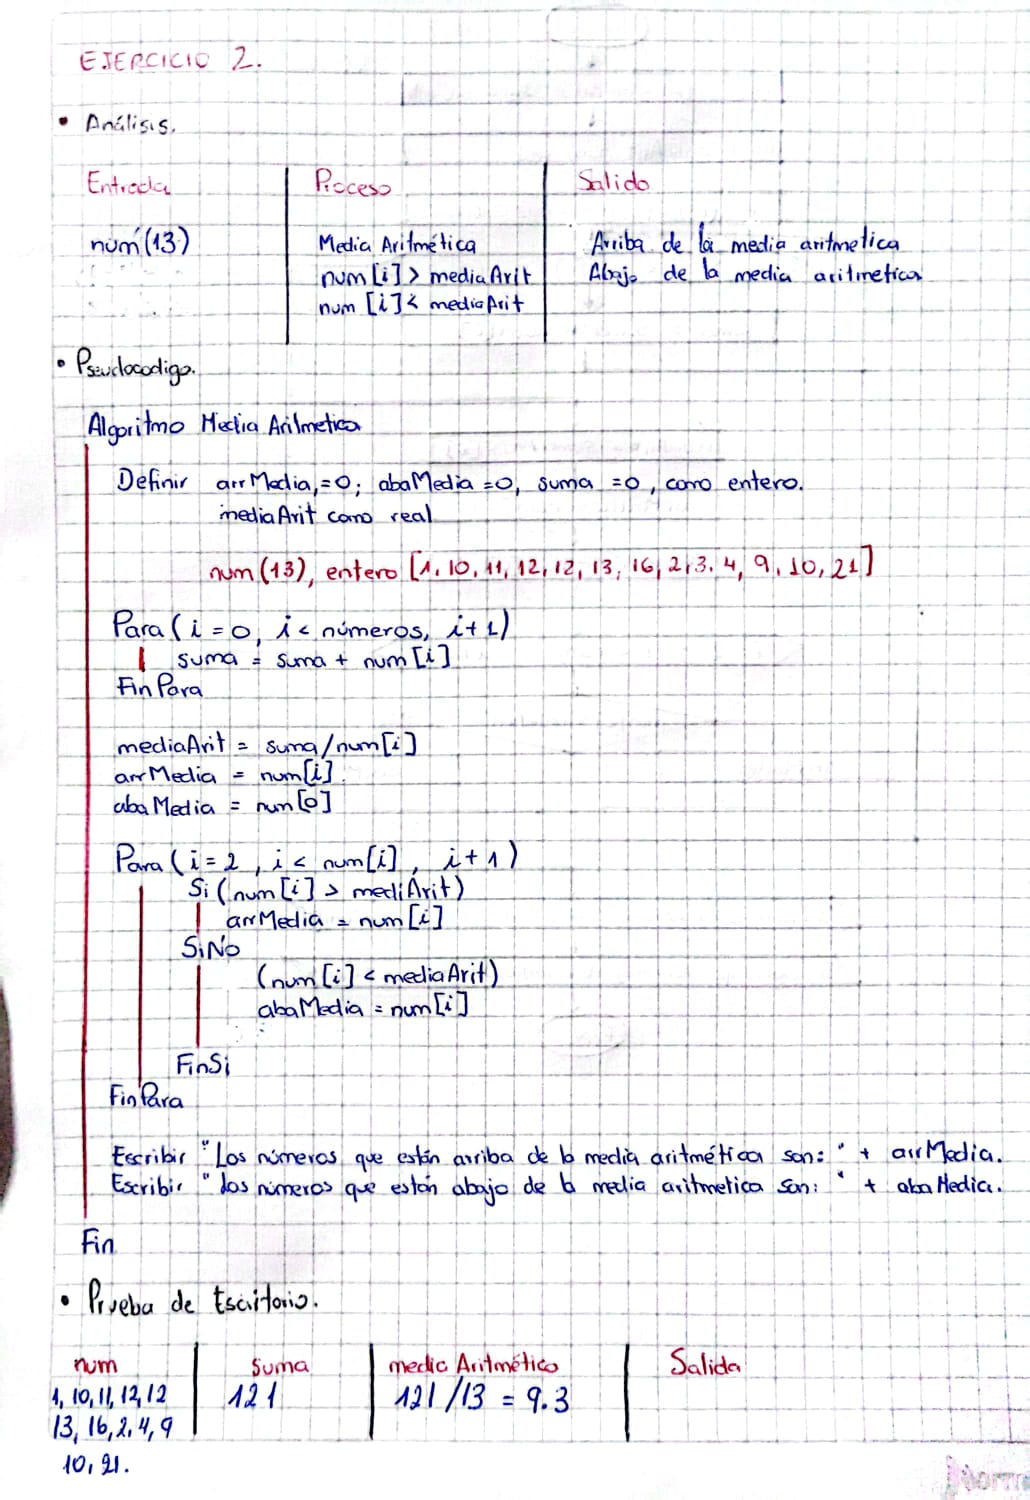 EJERCICIO 2.
• Análisis.
Entrada Proceso Salida
num(13) Media Aritmética Arriba de la media aritmetica
num[i] > mediaArit Abajo de la media aritmetica
num [i] < mediaArit
• Pseudocodigo.
Algoritmo Media Aritmetica
Definir arrMedia,=0; abaMedia =0, suma =0, como entero.
mediaArit como real
num(13), entero [1, 10, 11, 12, 12, 13, 16, 2, 3, 4, 9, 10, 21]
Para ( i = 0, i < números, i+1)
suma = suma + num[i]
Fin Para
mediaArit = suma/num[i]
arrMedia = num[i].
abaMedia = num[0]
Para ( i=2, i < num[i], i+1)
Si (num[i] > mediArit)
arrMedia = num[i]
SiNo
(num[i] < mediaArit)
abaMedia = num[i]
FinSi
FinPara
Escribir "Los números que están arriba de la media aritmética son: " + arrMedia.
Escribir "Los números que estan abajo de la media aritmetica son: " + abaMedia.
Fin
• Prueba de Escritorio.
num suma media Aritmético Salida
1, 10, 11, 12, 12 121 121/13 = 9.3
13, 16, 2, 4, 9
10, 21.